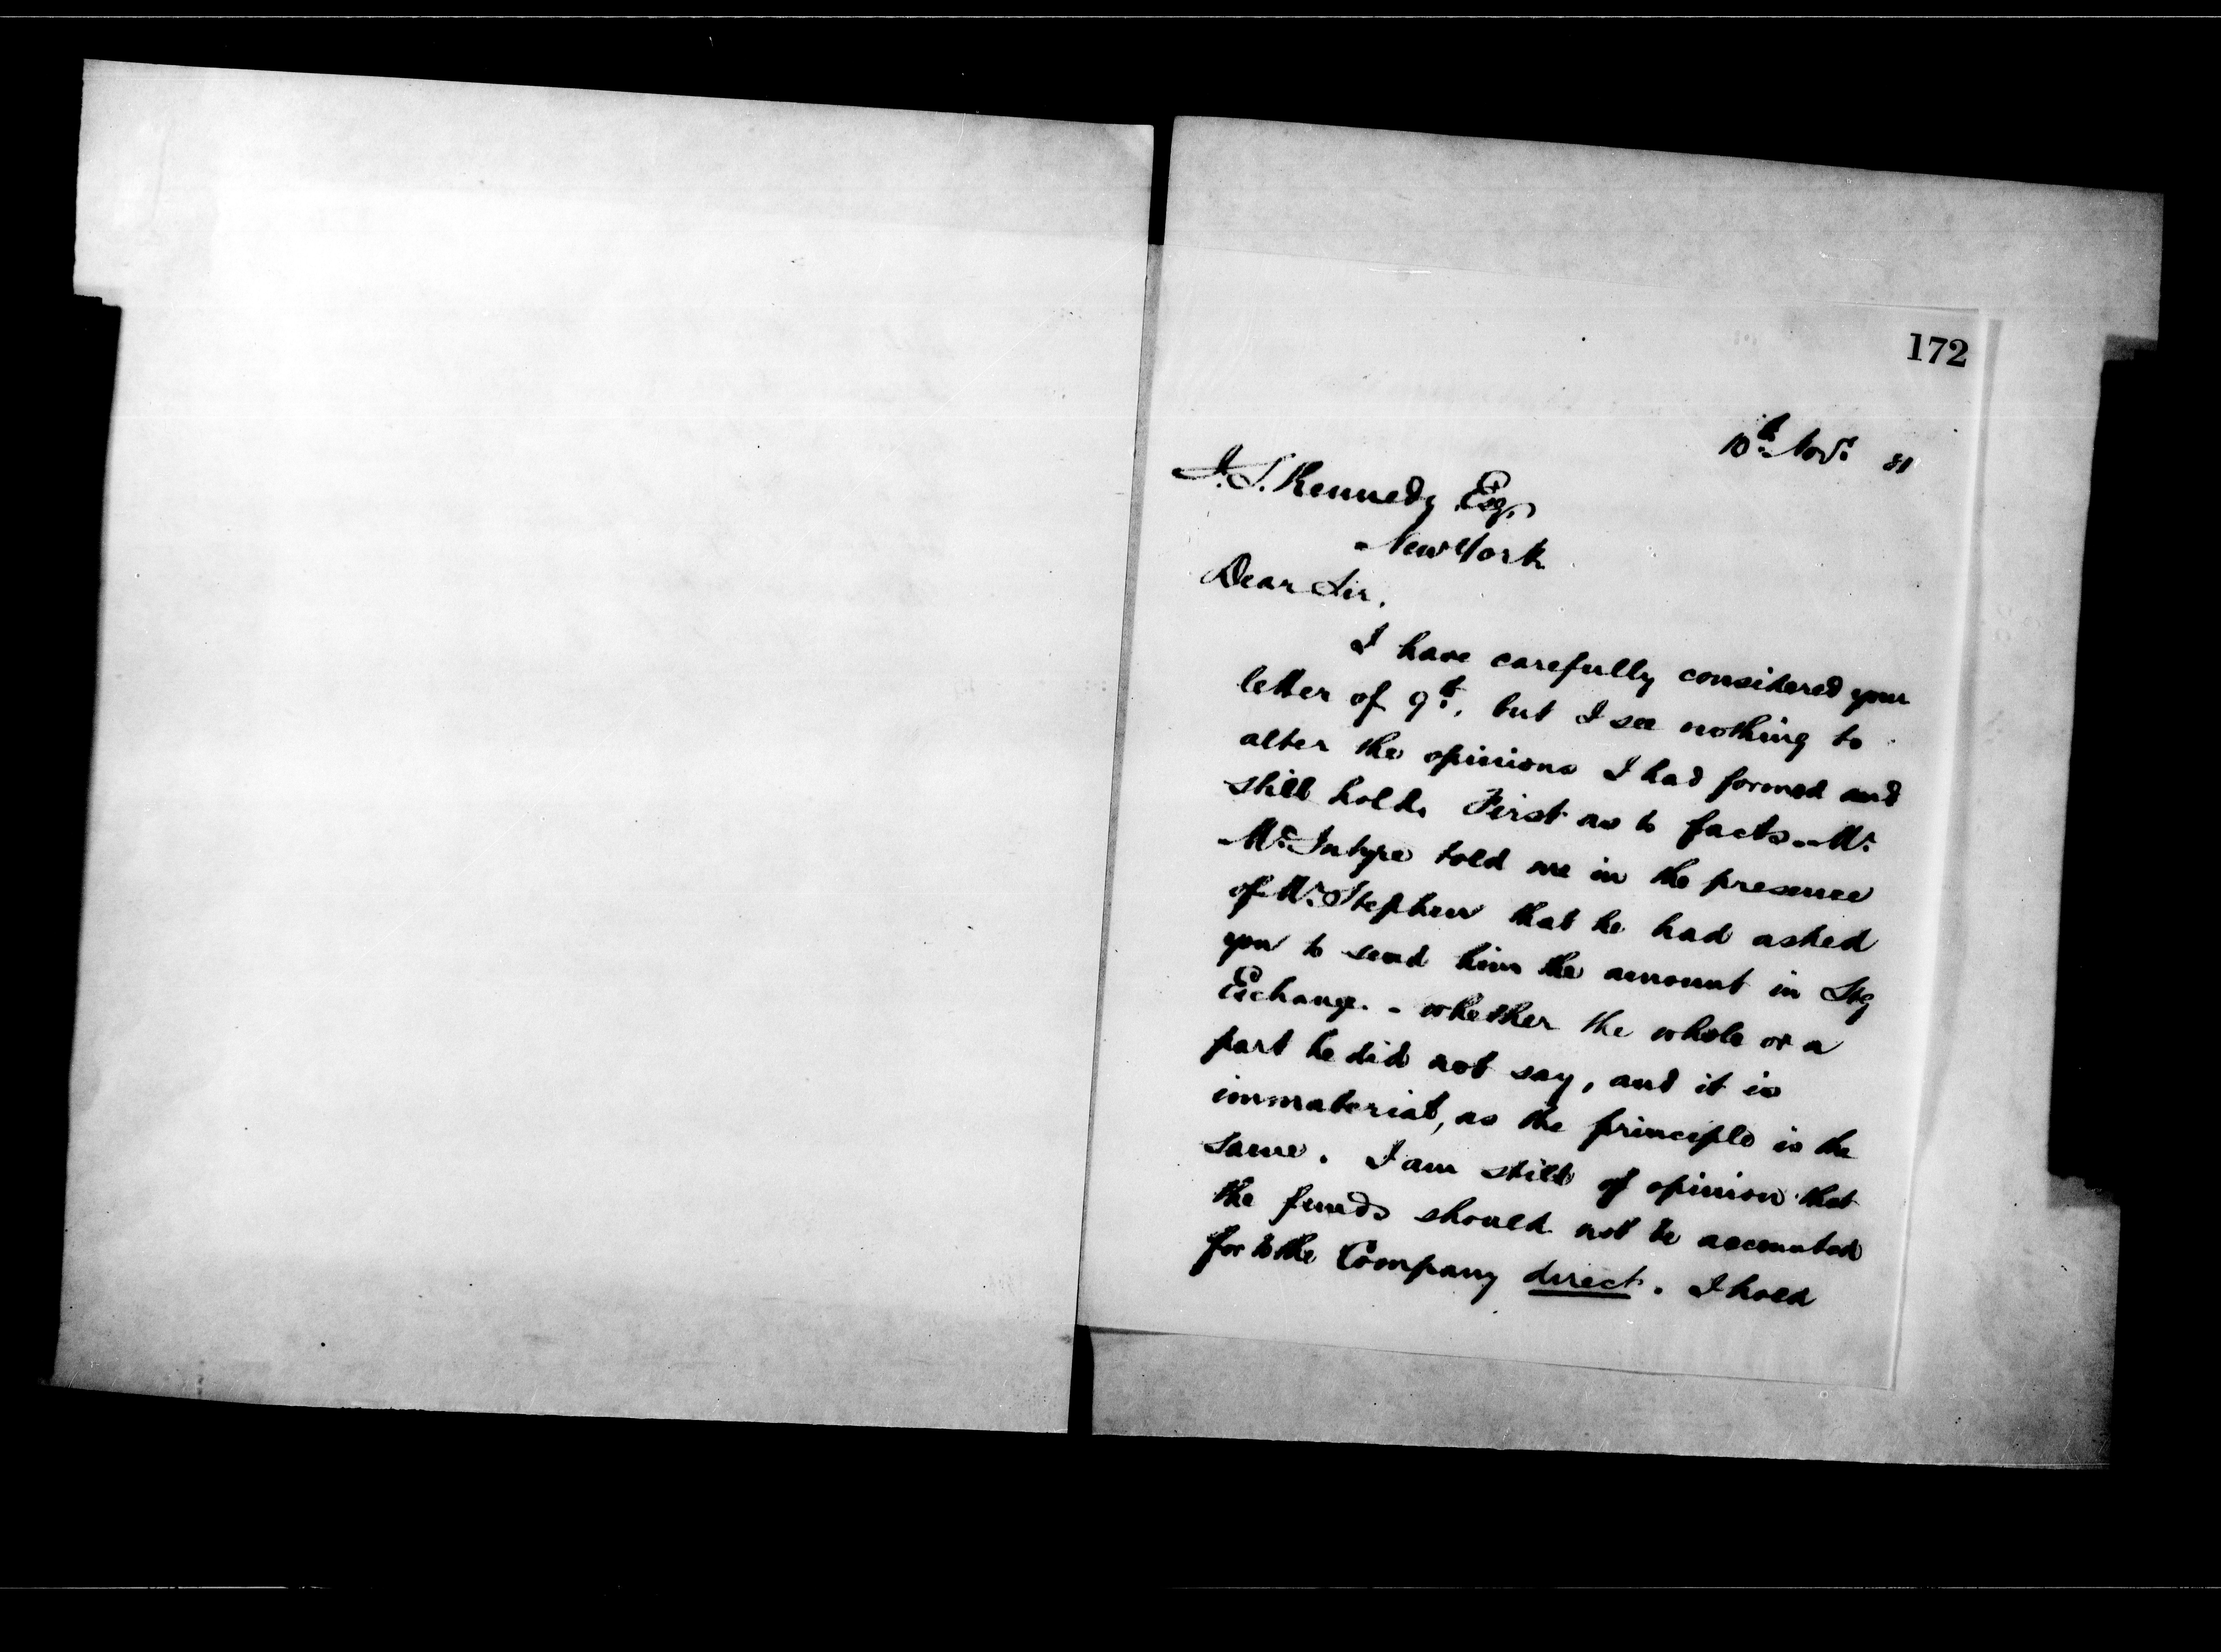 172
10th Novr 81
J. S. Kennedy Esq.
New York
Dear Sir,
I have carefully considered your
letter of 9th, but I see nothing to
alter the opinions I had formed and
still hold. First as to facts - Mr.
McIntyre told me in the presence
of Mr. Stephen that he had asked
you to send him the amount in Stg
Exchange. - whether the whole or a
part he did not say, and it is
immaterial, as the principle is the
same. I am still of opinion that
the funds should not be accounted
for to the Company direct. I hold